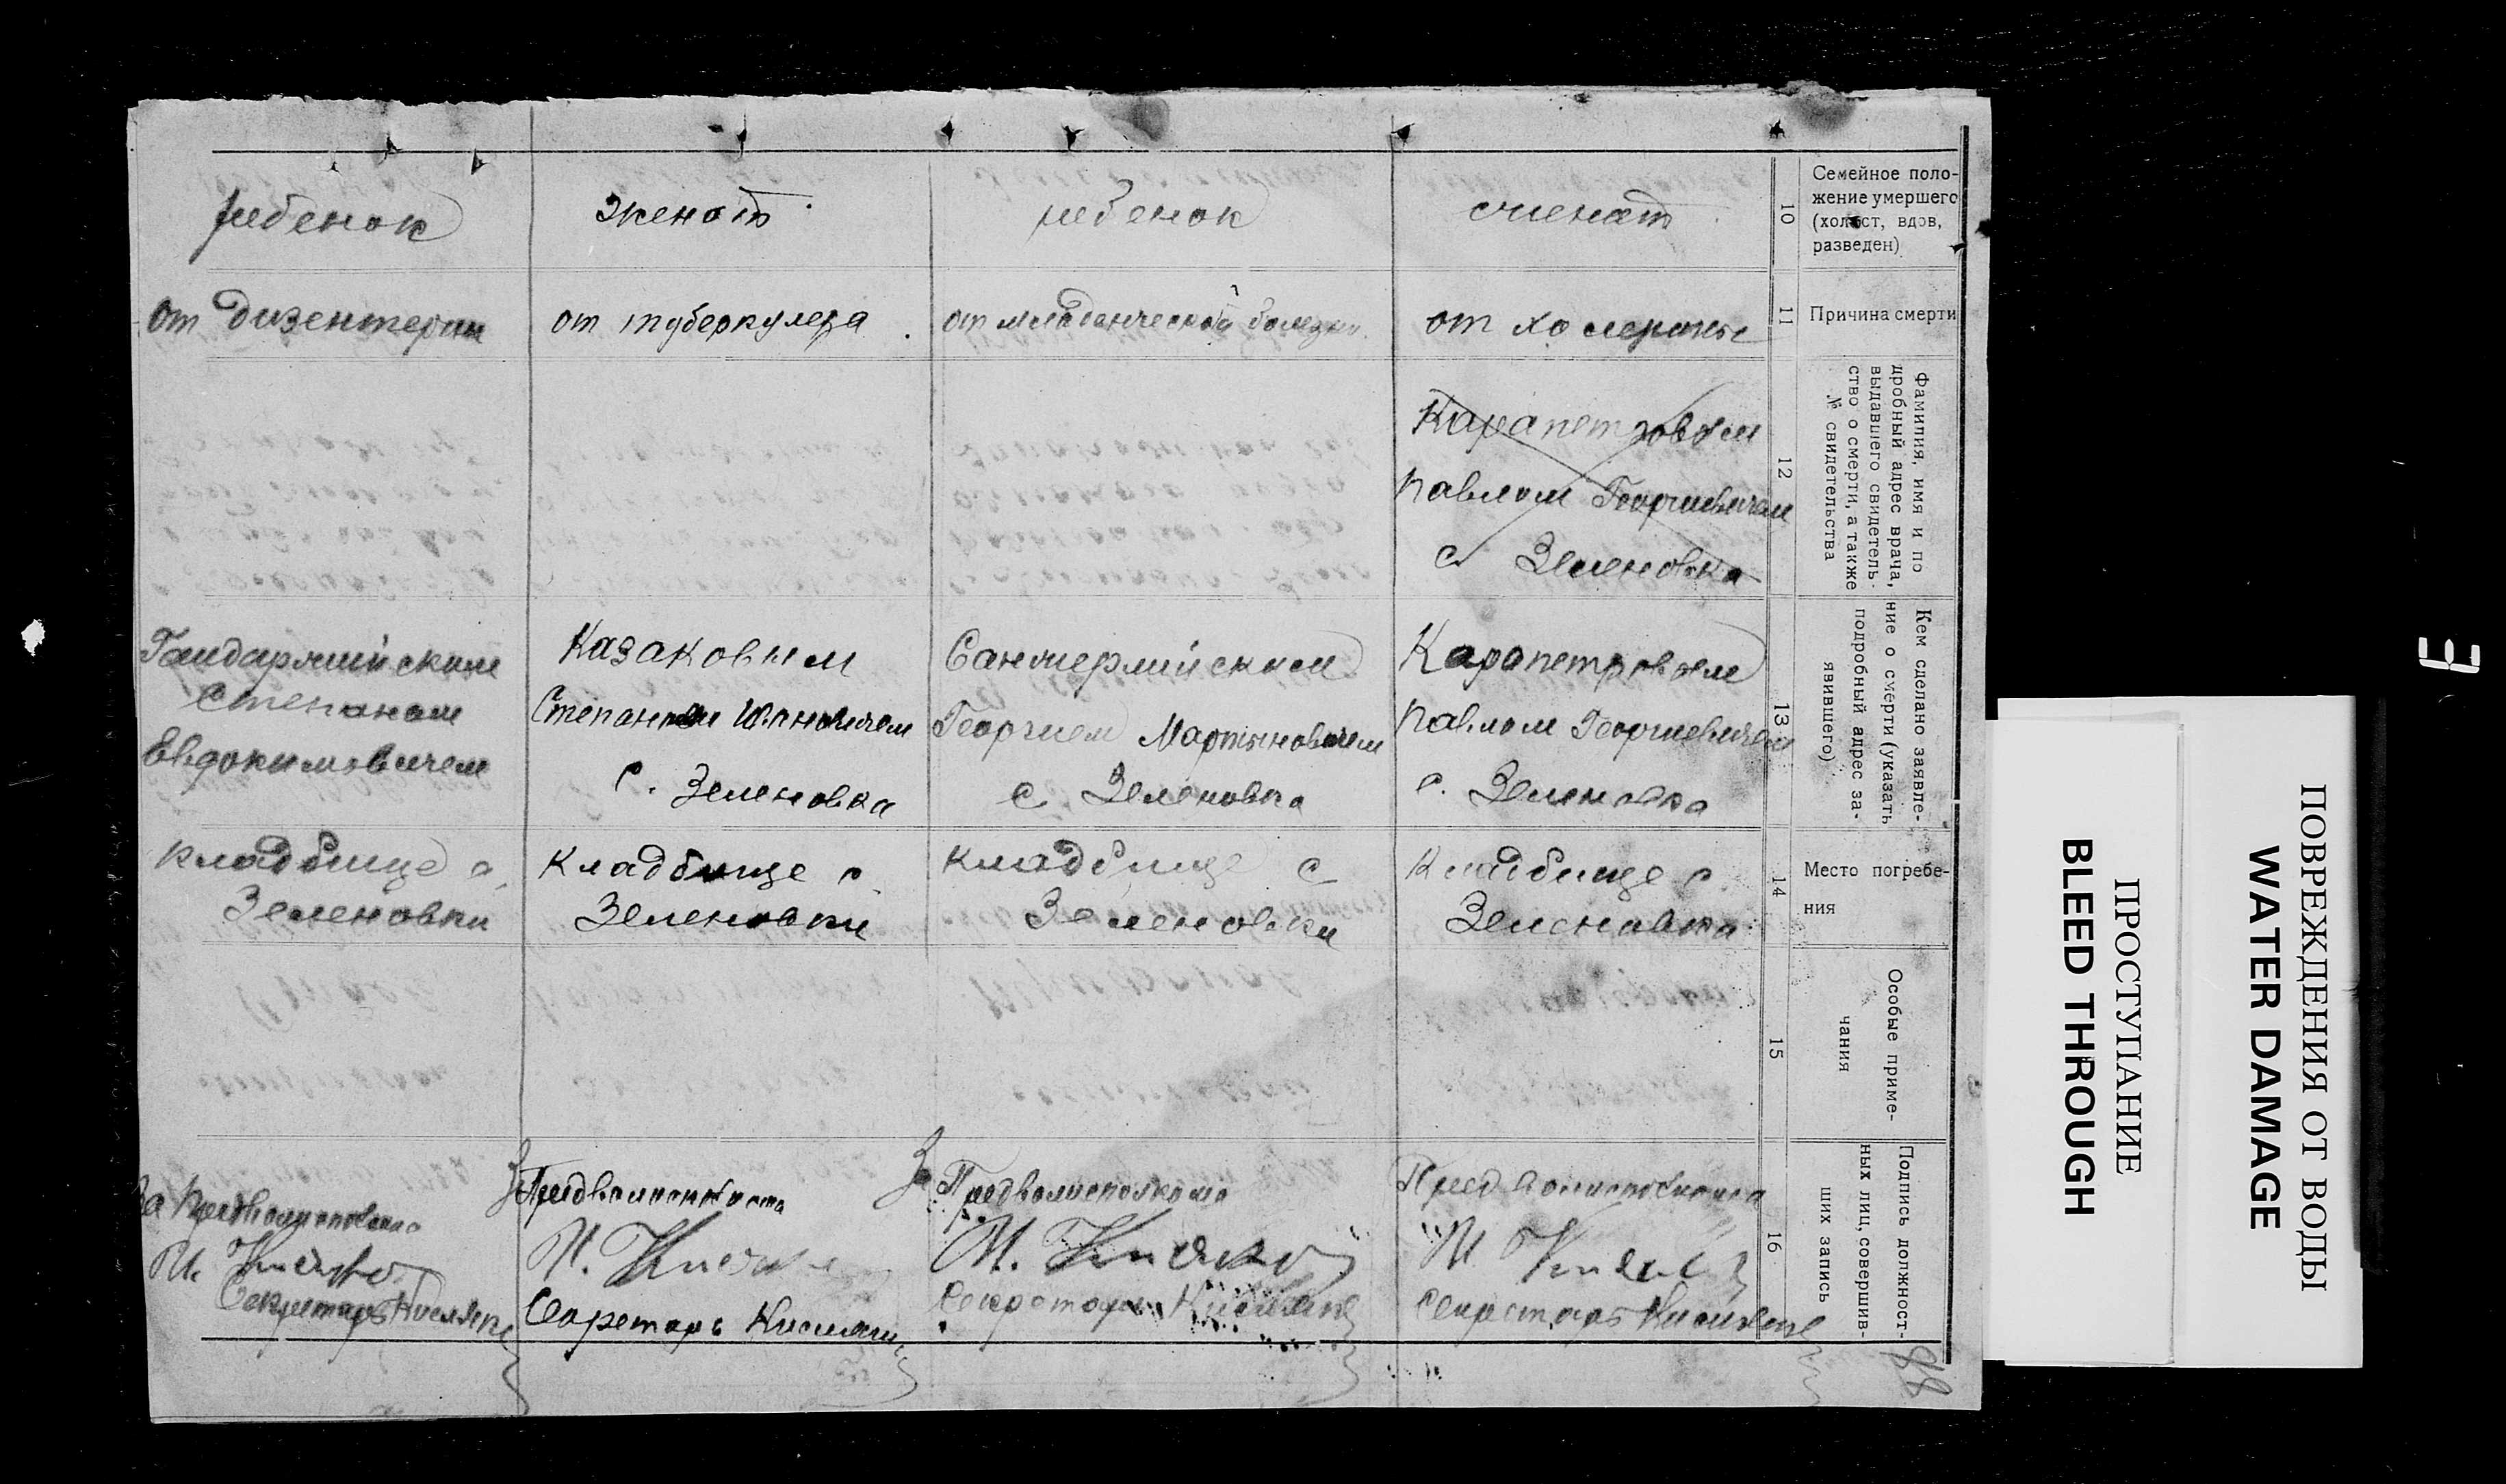 ребенок
женат
ребенок
женат
10
Семейное поло-
жение умершего
(холост, вдов,
разведен)
от дизентерии
от туберкулеза
от младенческой болезни
от холерины
11
Причина смерти
Карапетровым
Павлом Георгиевичем
с Зеленовка
12
Фамилия, имя и по
дробный адрес врача,
выдавшего свидетель-
ство о смерти, а также
№ свидетельства
Гайдаржийским
Степаном
Евдокимовичем
Казаковым
Степаном Ивановичем
с. Зеленовка
Санжермийским
Георгием Мартыновичем
с Зеленовка
Карапетровым
Павлом Георгиевичем
с. Зеленовка
13
Кем сделано заявле-
ние о смерти (указать
подробный адрес за-
явившего)
кладбище с.
Зеленовки
Кладбище с
Зеленовки
кладбище с
Зеленовки
Кладбище с
Зеленовка
14
Место погребе-
ния
15
Особые приме-
чания
За Предволисполкома
И.
Секретарь
За Предволисполкома
И.
Секретарь
За Предволисполкома
И.
Секретарь
Предволисполкома
И.
Секретарь
16
Подпись должност-
ных лиц, совершив-
ших запись
88
ПРОСТУПАНИЕ
BLEED THROUGH
ПОВРЕЖДЕНИЯ ОТ ВОДЫ
WATER DAMAGE
E